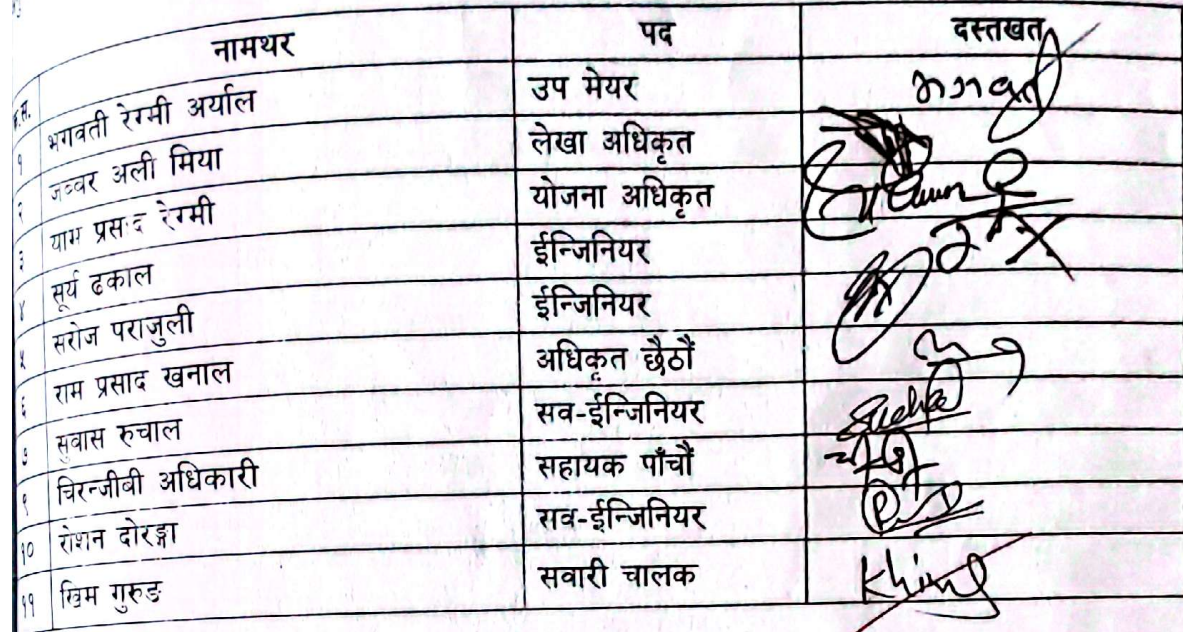 क्र.स. नामथर पद दस्तखत
१ भगवती रेग्मी अर्याल उप मेयर भगवती
२ जब्बर अली मिया लेखा अधिकृत
३ याम प्रसाद रेग्मी योजना अधिकृत
४ सूर्य ढकाल ईन्जिनियर
५ सरोज पराजुली ईन्जिनियर
६ राम प्रसाद खनाल अधिकृत छैठौं
७ सुवास रुचाल सव-ईन्जिनियर
९ चिरन्जीवी अधिकारी सहायक पाँचौं
१० रोशन दोरङ्गा सव-ईन्जिनियर
११ खिम गुरुङ सवारी चालक Khim